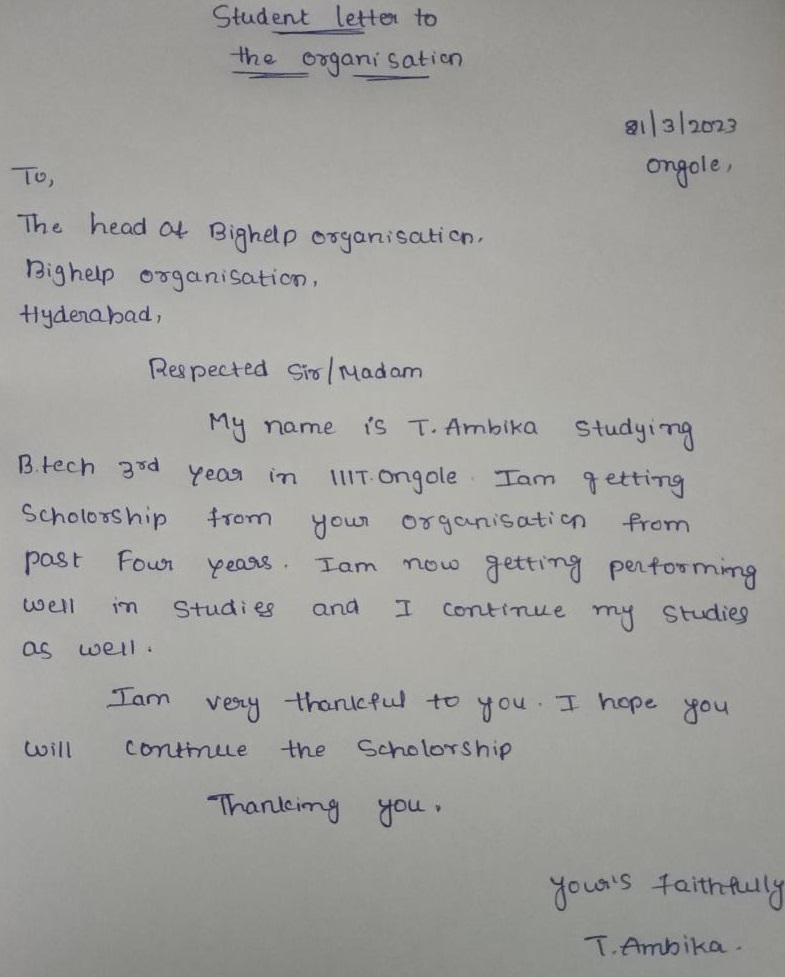 Student letter to
the organisation
31/3/2023
ongole,
To,
The head of Bighelp organisation.
Bighelp organisation,
Hyderabad,
Respected Sir/Madam
My name is T. Ambika Studying
B.tech 3rd year in IIIT.Ongole. Iam getting
Scholorship from your organisation from
past Four years. Iam now getting performing
well in Studies and I continue my Studies
as well.
Iam very thankful to you. I hope you
will continue the Scholorship
Thanking you.
your's faithfully
T. Ambika.